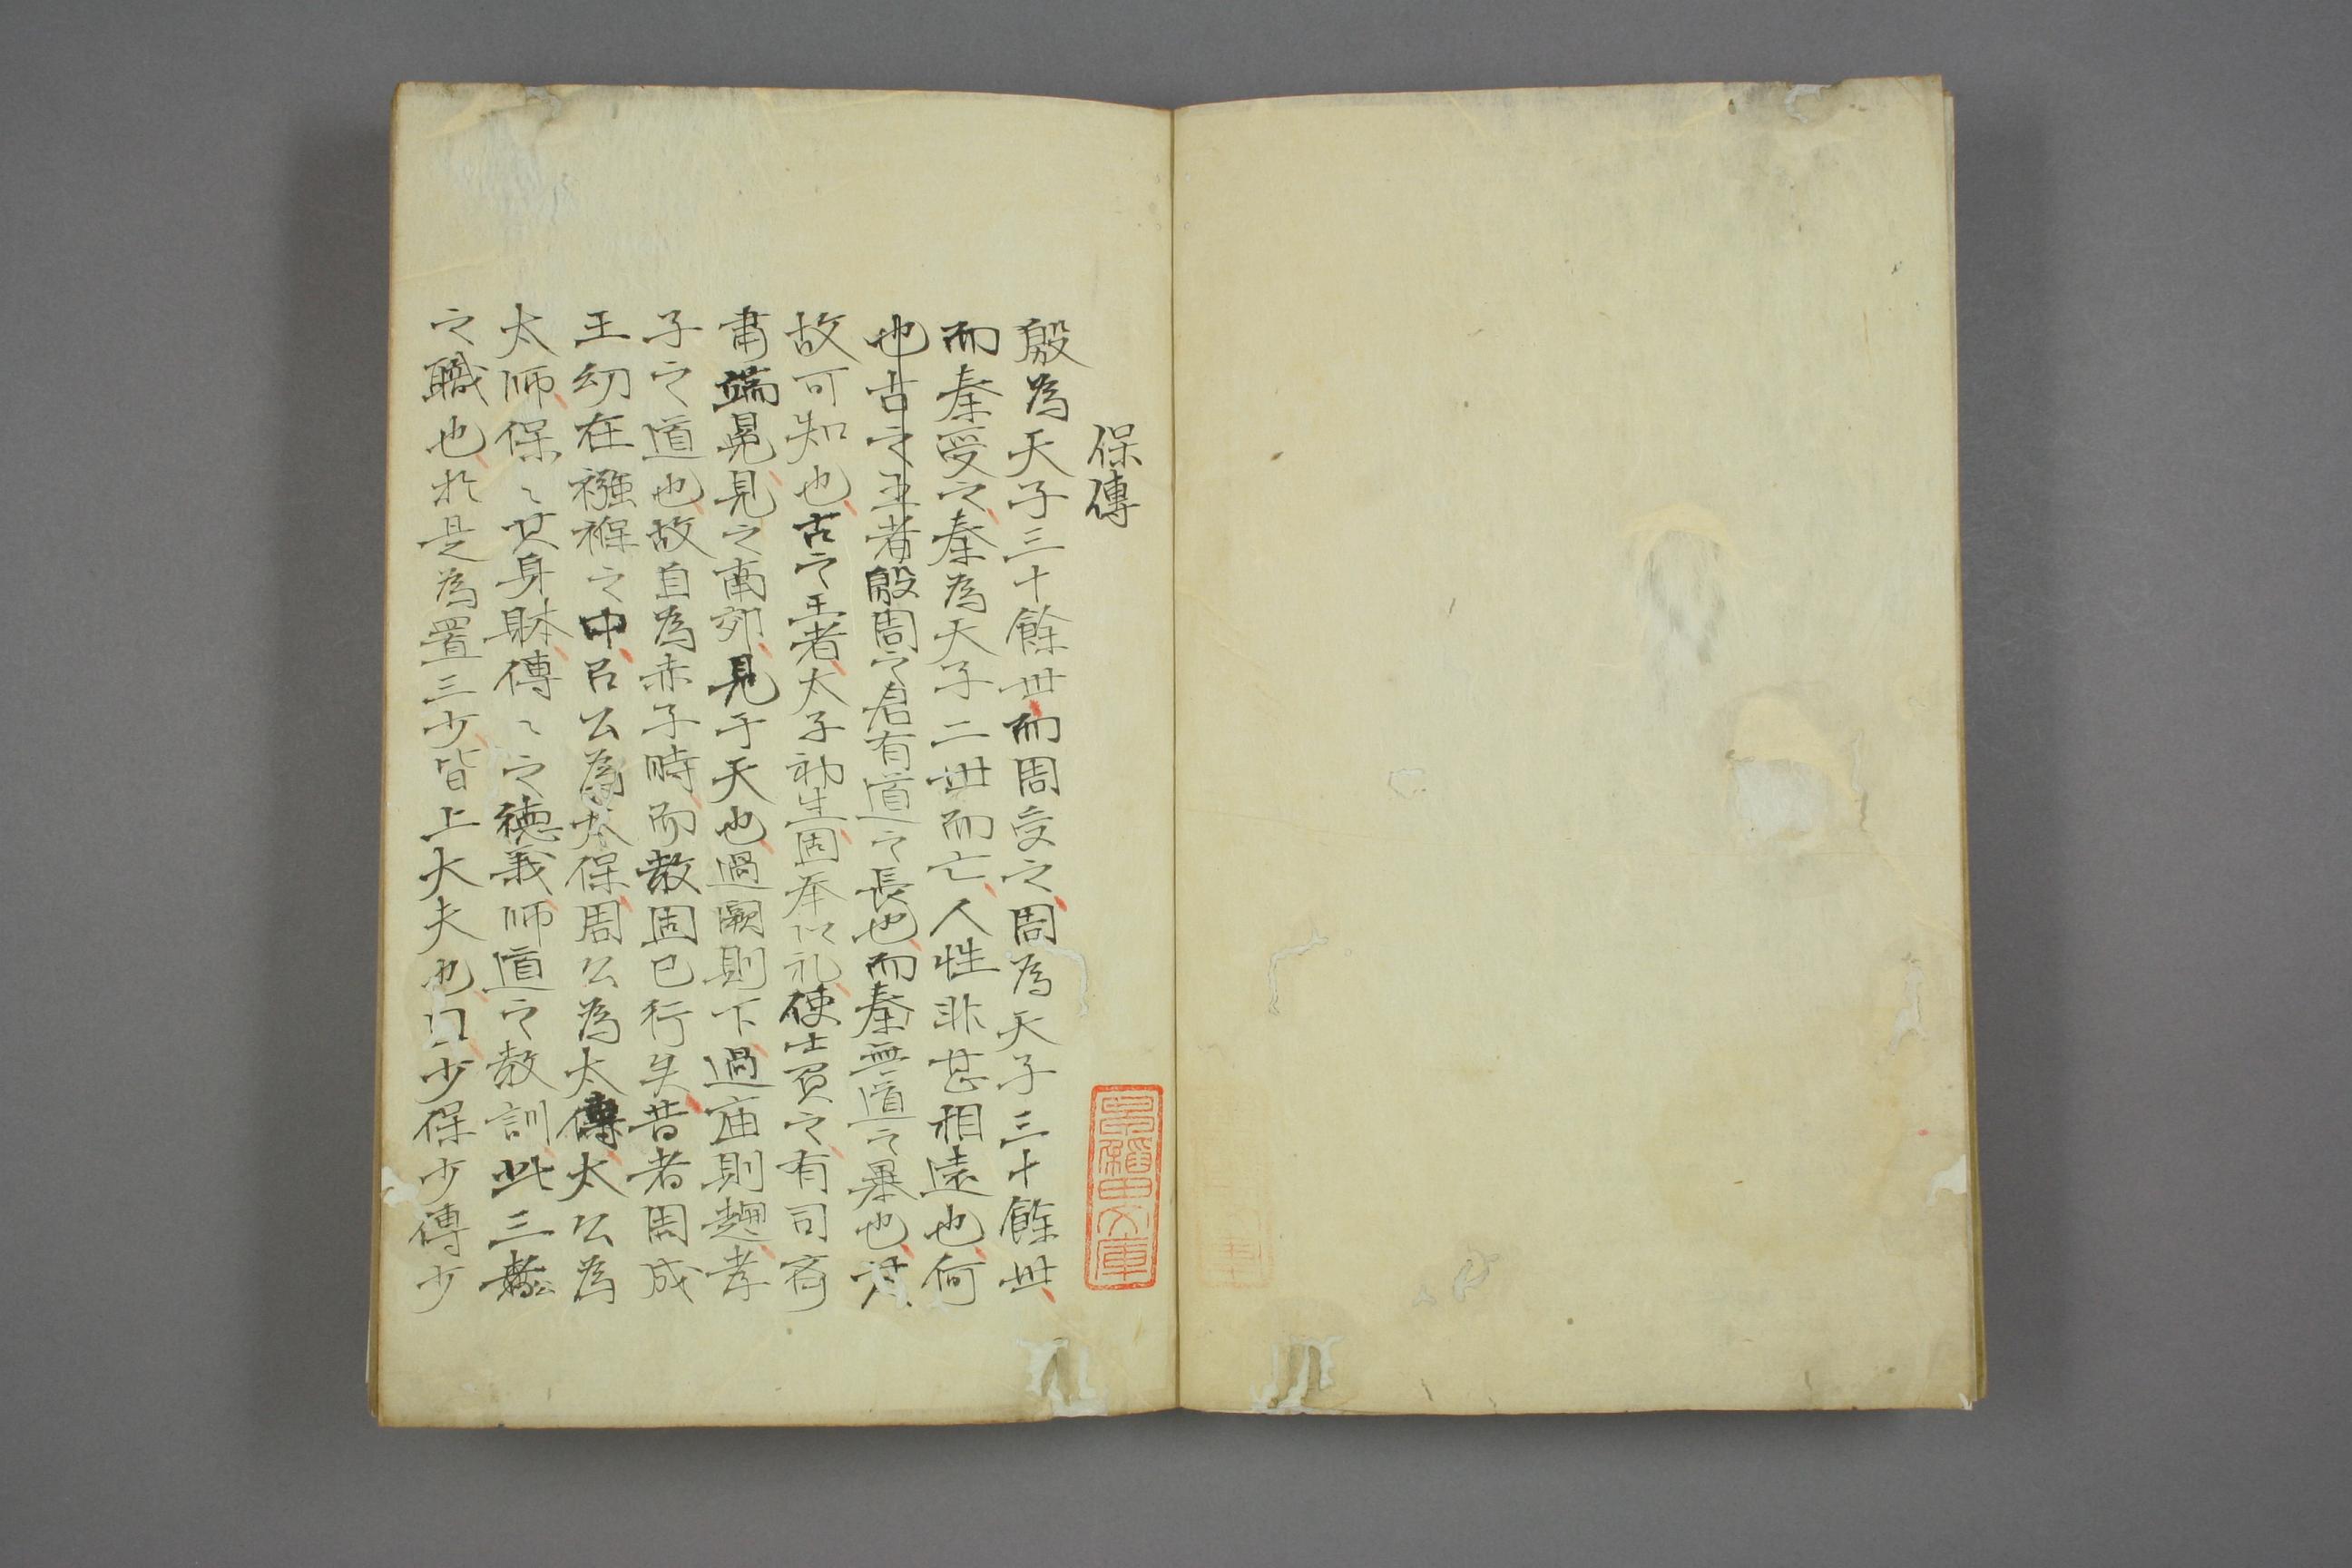 保傅
殷為天子三十餘世而周受之周為天子三十餘世
而秦受之秦為天子二世而亡人性非甚相遠也何
也古之王者殷周之君有道之長也而秦無道之暴也其
故可知也古之王者太子初生固奉以礼使士負之有司斎
肅端冕見之南郊見于天也過闕則下過庙則趨孝
子之道也故自為赤子時而教固已行矣昔者周成
王幼在襁褓之中召公為太保周公為太傅太公為
太師保〻其身躰傅〻之德義師道之教訓此三
之職也於是為置三少皆上大夫也曰少保少傅少